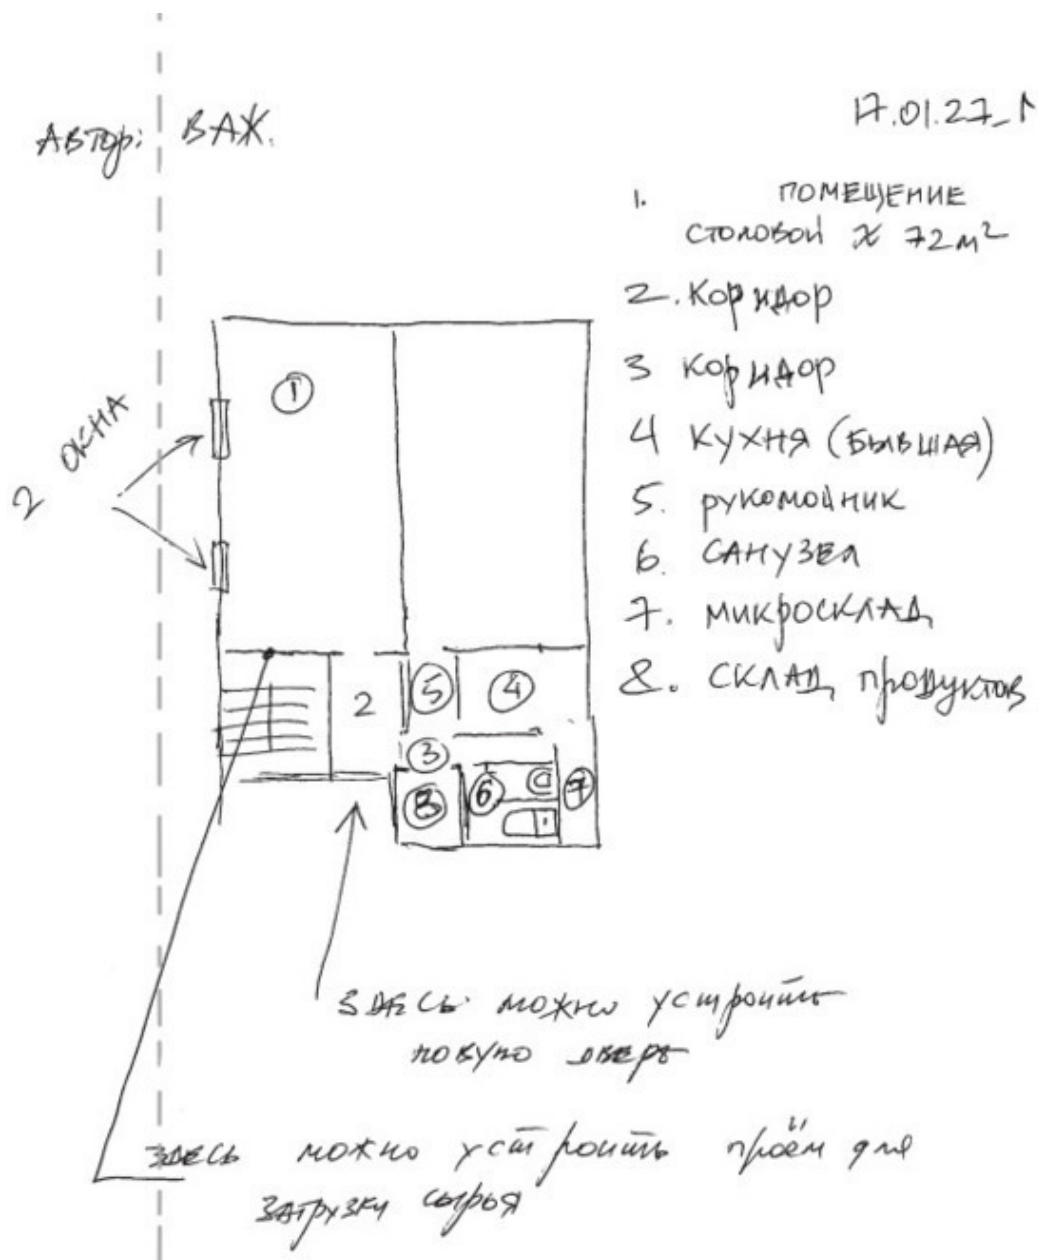 Автор: ВАЖ.
17.01.27_1
1. ПОМЕЩЕНИЕ
СТОЛОВОЙ ≈ 72 м²
2. Коридор
3 Коридор
4 КУХНЯ (БЫВШАЯ)
5. рукомойник
6. САНУЗЕЛ
7. МИКРОСКЛАД
8. СКЛАД продуктов
2 ОКНА
1
2
5
4
3
8
6
7
ЗДЕСЬ можно устроить
новую дверь
ЗДЕСЬ можно устроить проём для
ЗАГРУЗКИ сырья